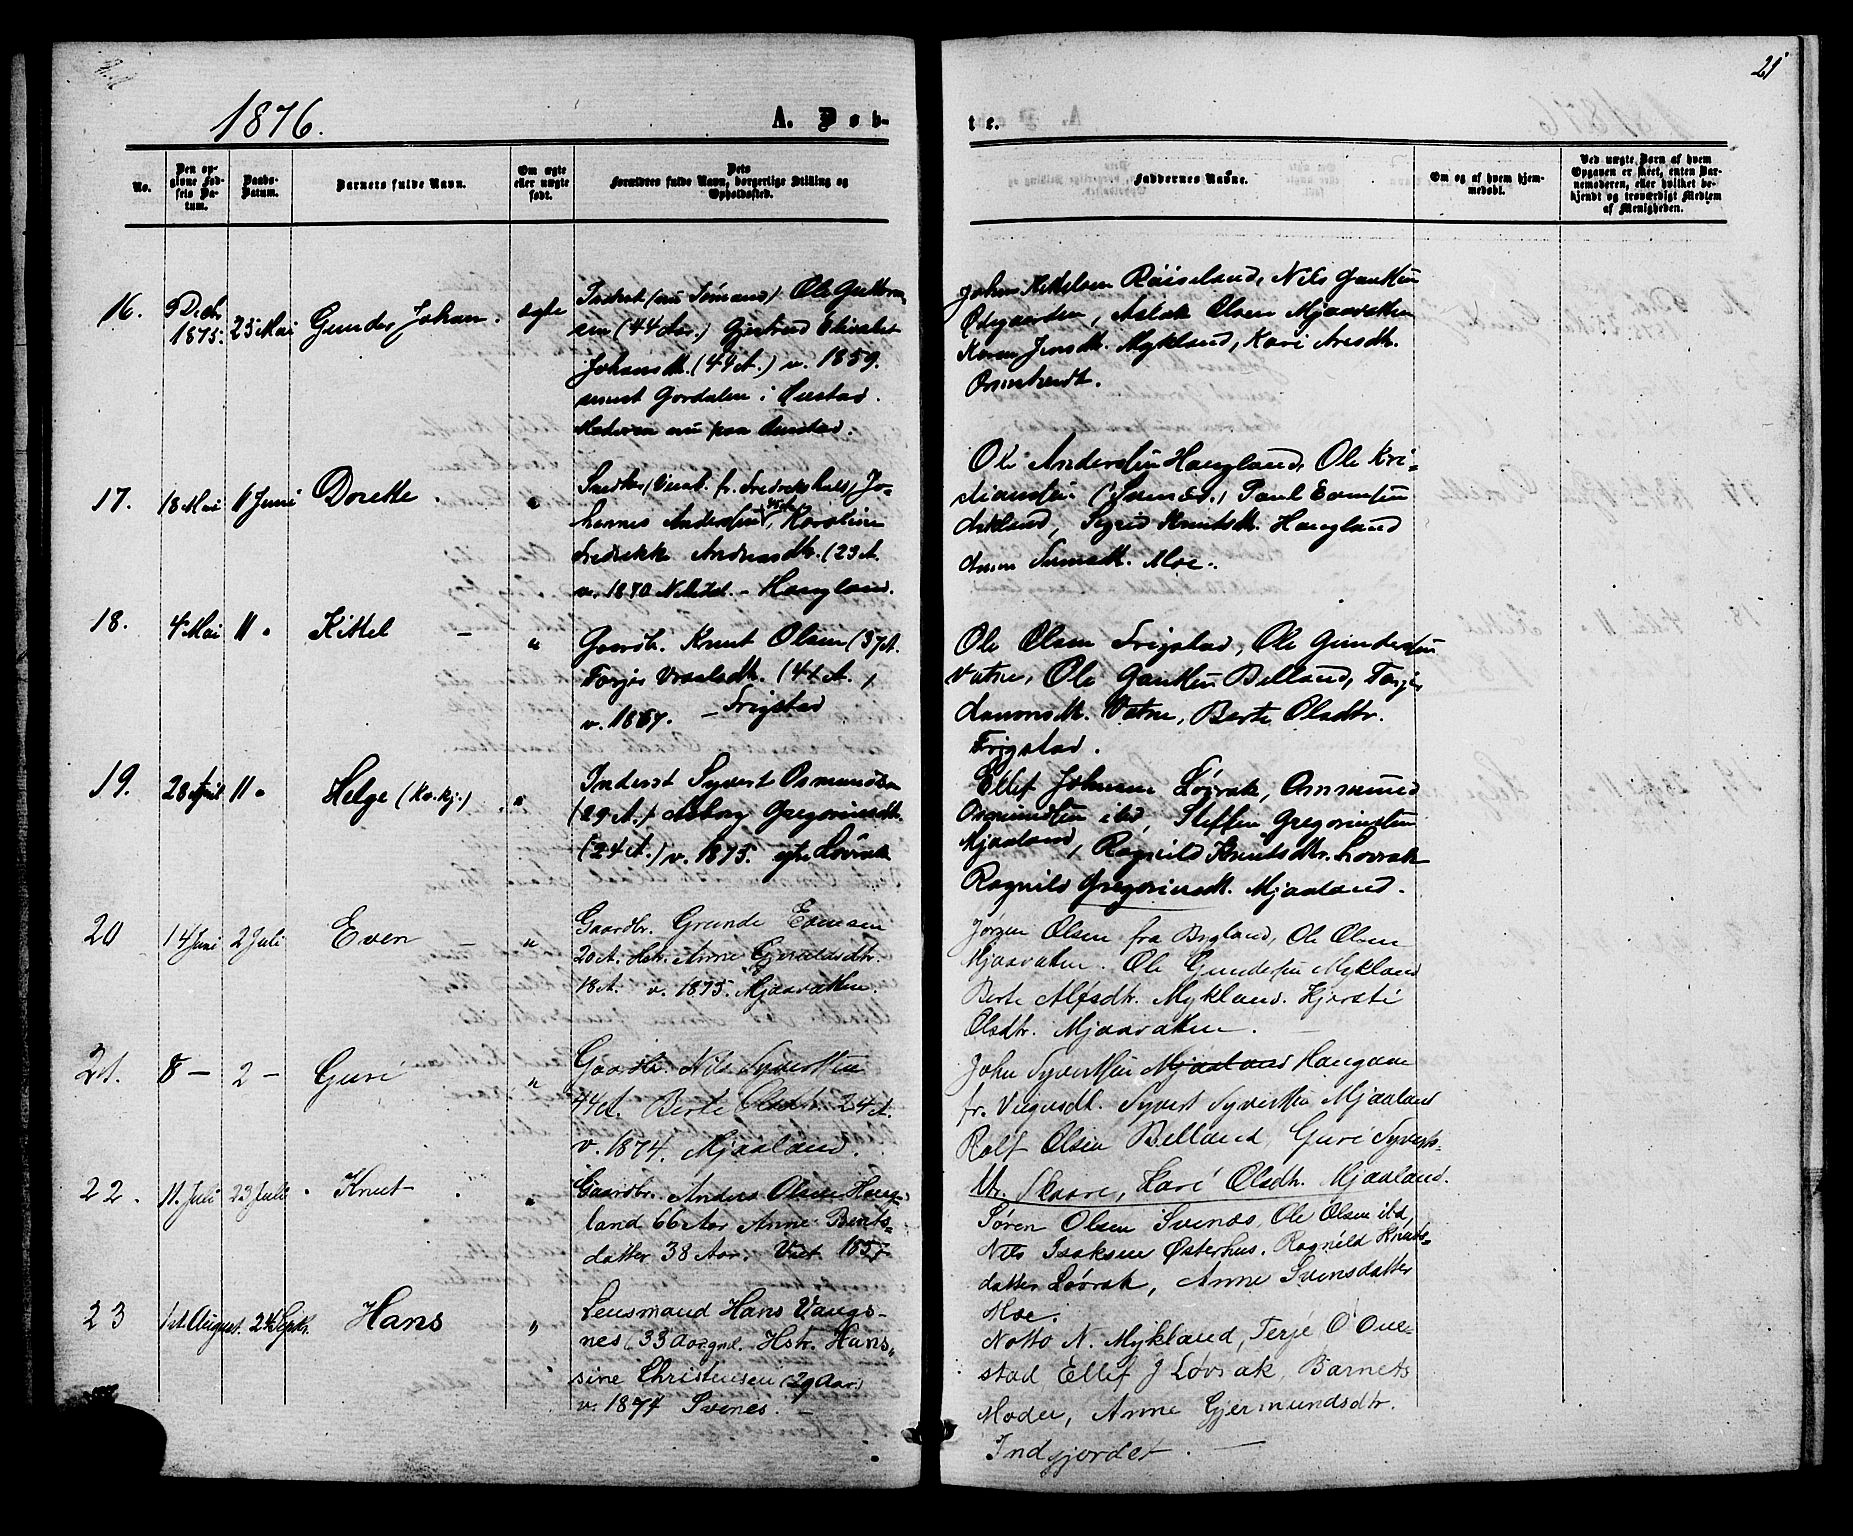 21
1876.
A. Døb-
te.
No.
Den op-
givne Fød-
sels Da-
tum.
Daabs-
Datum.
Barnets fulde Navn.
Om ægte
eller uægte
født.
Dets
Forældres fulde Navn, borgerlige Stilling og
Opholdssted.
Faddernes Navne.
Om og af hvem hjem-
medøbt.
Ved uægte Børn af hvem
Opgaven er skeet, enten Bar-
nemoderen, eller hvilket be-
kjendt og troværdigt Medlem
af Menigheden.
16. 9 Decbr. 1875. 25 Mai Gunder Johan. ægte
Inderst (nu Sømand) Ole Guttorm-
sen (44 Aar.) Gjertrud Elisabet
Johansdt. (44 A.) v. 1859.
Gordalen i
Moderen nu paa
John Kittelsen Røiseland, Nils
Ødegaarden, Aslak Olsen Mjaavatten
Karen Jensdt. Mykland, Kari Aresdt.
17. 18 Mai 11 Juni Dorette "
Snedker, fr. Fredrikshald, Jo-
hannes Anderssen Karoline
Fredrikke Andreasdtr. (29 A.
v. 1870 – Haugland.
Ole Anderssen Haugland, Ole Kri-
stiansen (Svenes.) Paul Evensen
Askland, Sigrid Knutsdt. Haugland
Moe.
18. 4 Mai 11 " Kittel – "
Gaardbr. Knut Olsen (37 A.
Torjer (44 A.,
v. 1867. – Frigstad
Ole Olsen Frigstad, Ole Gundersen
Vatne, Ole Belland,
Vatne, Berte Olsdtr.
Frigstad.
19. 28 April 11 " Helge (Kv.kj.) "
Inderst Syvert Osmundsen
(29 A.) Aaborg Gregoriusdt.
(24 A.) v. 1875. Løvrak
Ellef Johnsen Løvrak,
Osmundsen ibd, Steffen Gregoriussen
Mjaaland, Ragnild Knutsdtr. Løvrak
Ragnild Gregoriusdt. Mjaaland.
20 14 Juni 2 Juli Even – "
Gaardbr. Grunde Evensen
20 A. Hstr. Anne
18 A. v. 1875. Mjaavatten.
Jørgen Olsen fra Bygland, Ole Olsen
Mjaavatten. Ole Gundersen Mykland
Berte Alfsdtr. Mykland. Kjersti
Olsdtr. Mjaavatten. –
21. 8 – 2 – Guri "
Gaardbr. Nils Syvertsen
44 A. Berte Olsdtr. 24 A.
v. 1874. Mjaaland.
John Syvertsen Mjaaland Haugaae
fr. Vegusdl. Syvert Syvertsen Mjaaland
Rolf Olsen Belland, Guri Syverts-
dtr. Skaare, Kari Olsdtr. Mjaaland.
22. 11. Juli 23 Juli Knut "
Gaardbr. Anders Olsen Haug-
land 66 Aar Anne Bents-
datter 38 Aar. Viet 1857.
Søren Olsen Svenes, Ole Olsen ibd,
Nils Isaksen Østerhus. Ragnild Knuts-
datter Løvrak, Anne Svensdatter
Moe.
23 1st August. 24 Septbr. Hans "
Lensmand Hans Vangs-
nes, (33 Aar gml. Hstr. Hans-
sine Christensen (29 Aar)
v. 1874 Svenes. –
Notto N. Mykland, Terje O Ove-
stad Ellef J Løvrak, Barnets
Moder, Anne Gjermundsdtr.
Indgjordet. –